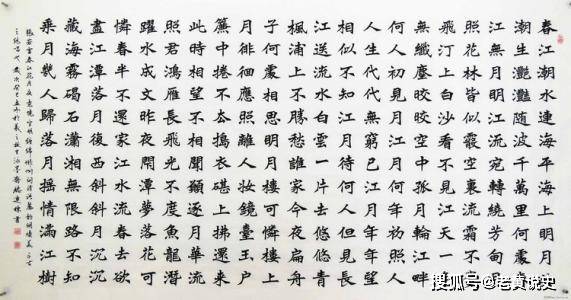 春江潮水連海平海上明月共
潮生灩灩隨波千萬里何處春
江無月明江流宛轉繞芳甸月
照花林皆似霰空裏流霜不覺
飛汀上白沙看不見江天一色
無纖塵皎皎空中孤月輪江畔
何人初見月江月何年初照人
人生代代無窮已江月年年望
相似不知江月待何人但見長
江送流水白雲一片去悠悠青
楓浦上不勝愁誰家今夜扁舟
子何處相思明月樓可憐樓上
月徘徊應照離人妝鏡臺玉戶
簾中捲不去搗衣砧上拂還來
此時相望不相聞願逐月華流
照君鴻雁長飛光不度魚龍潛
躍水成文昨夜閒潭夢落花可
憐春半不還家江水流春去欲
盡江潭落月復西斜斜月沉沉
藏海霧碣石瀟湘無限路不知
乘月幾人歸落月搖情滿江樹
搜狐号@老黄说史